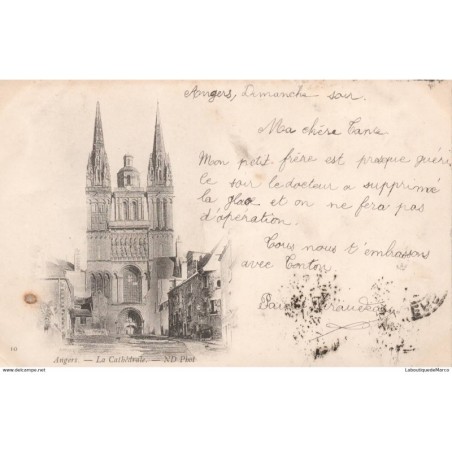 Angers, Dimanche soir.
Ma chère Tante
Mon petit frère est presque guéri
ce soir le docteur a supprimé
la glace et on ne fera pas
d'opération.
Tous nous t'embrassons
avec Tonton
10
Angers. — La Cathédrale. — ND Phot
LaboutiquedeMarco